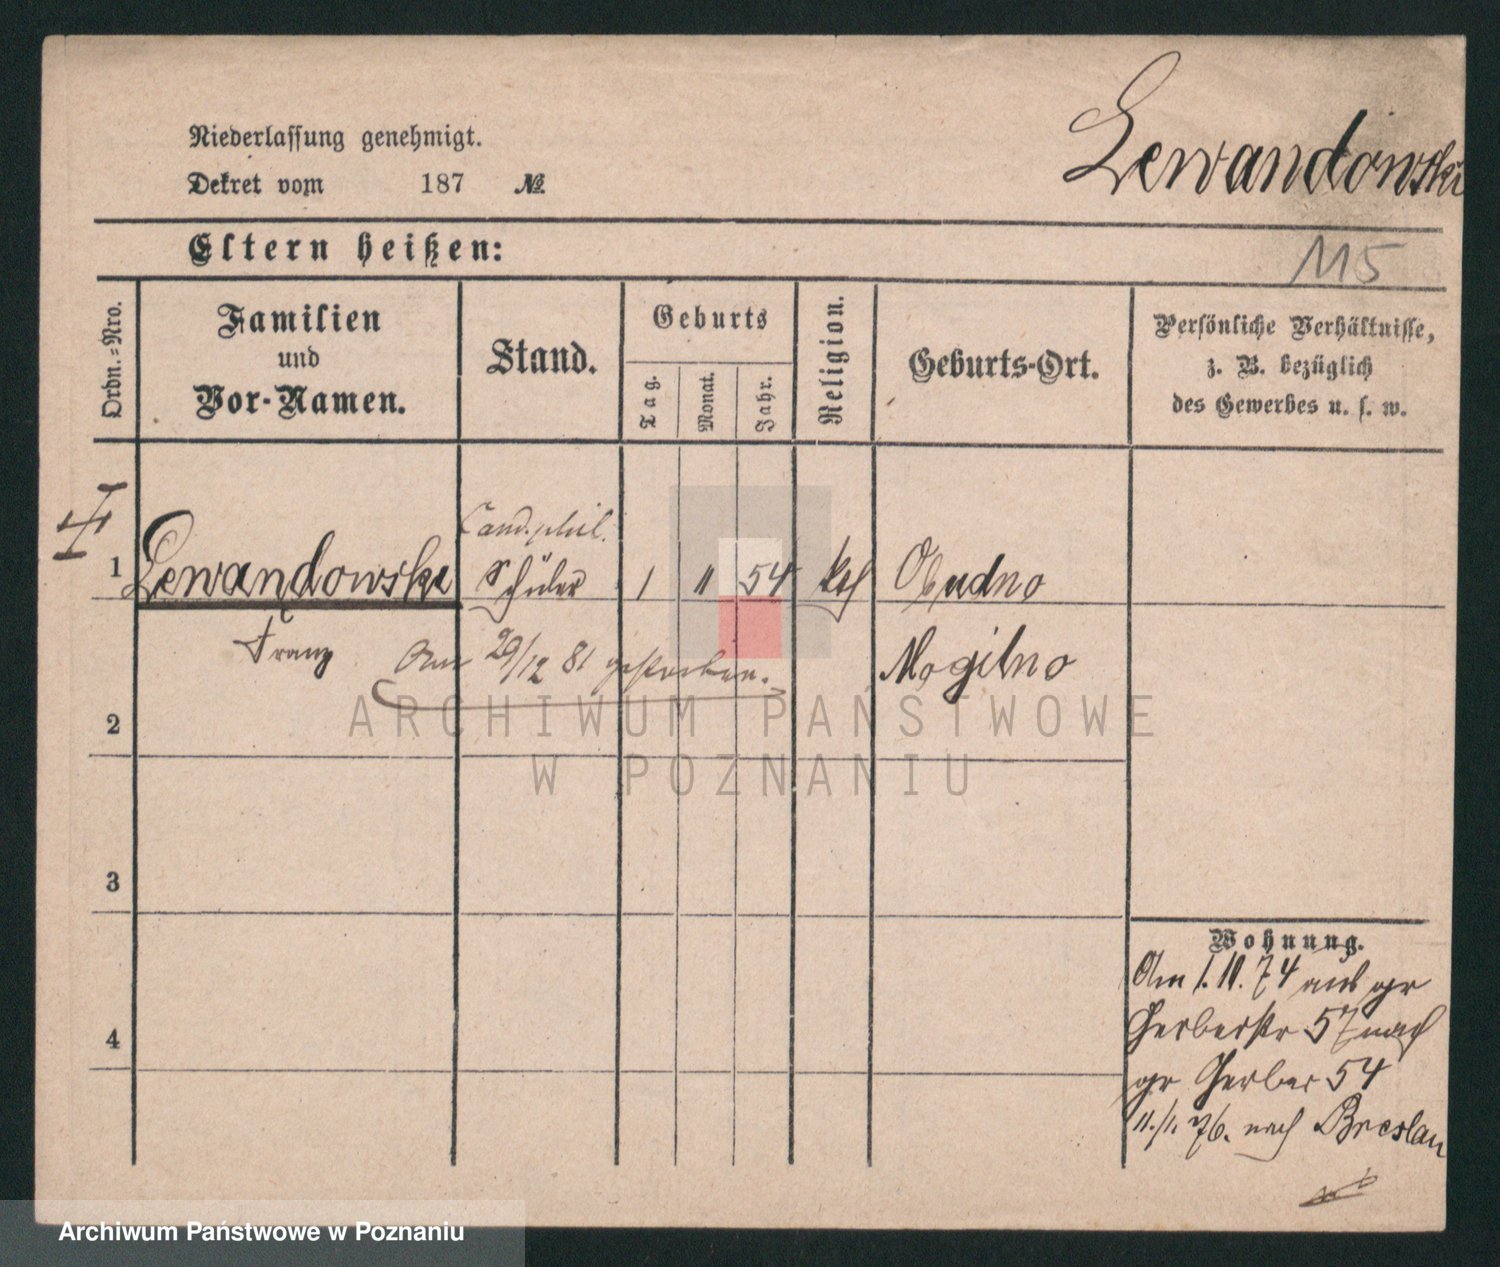 Lewandowski
Niederlassung genehmigt.
Dekret vom 187 №
Eltern heißen:
115
Ordn.=Nro.
Familien
und
Vor-Namen.
Stand.
Geburts
Tag.
Monat.
Jahr.
Religion.
Geburts-Ort.
Persönliche Verhältnisse,
z. B. bezüglich
des Gewerbes u. s. w.
Cand. phil.
1 Lewandowski Schüler 1 11 54 kath
Franz Am 29/12 81 gestorben. Mogilno
2
3
4
Wohnung.
Am 1. 11. 74 aus gr
Gerberstr 57 nach
gr Gerber 54
11./1. 76. nach Breslau
ARCHIWUM PAŃSTWOWE
W POZNANIU
Archiwum Państwowe w Poznaniu